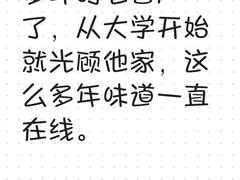 了，从大学开始
就光顾他家，这
么多年味道一直
在线。